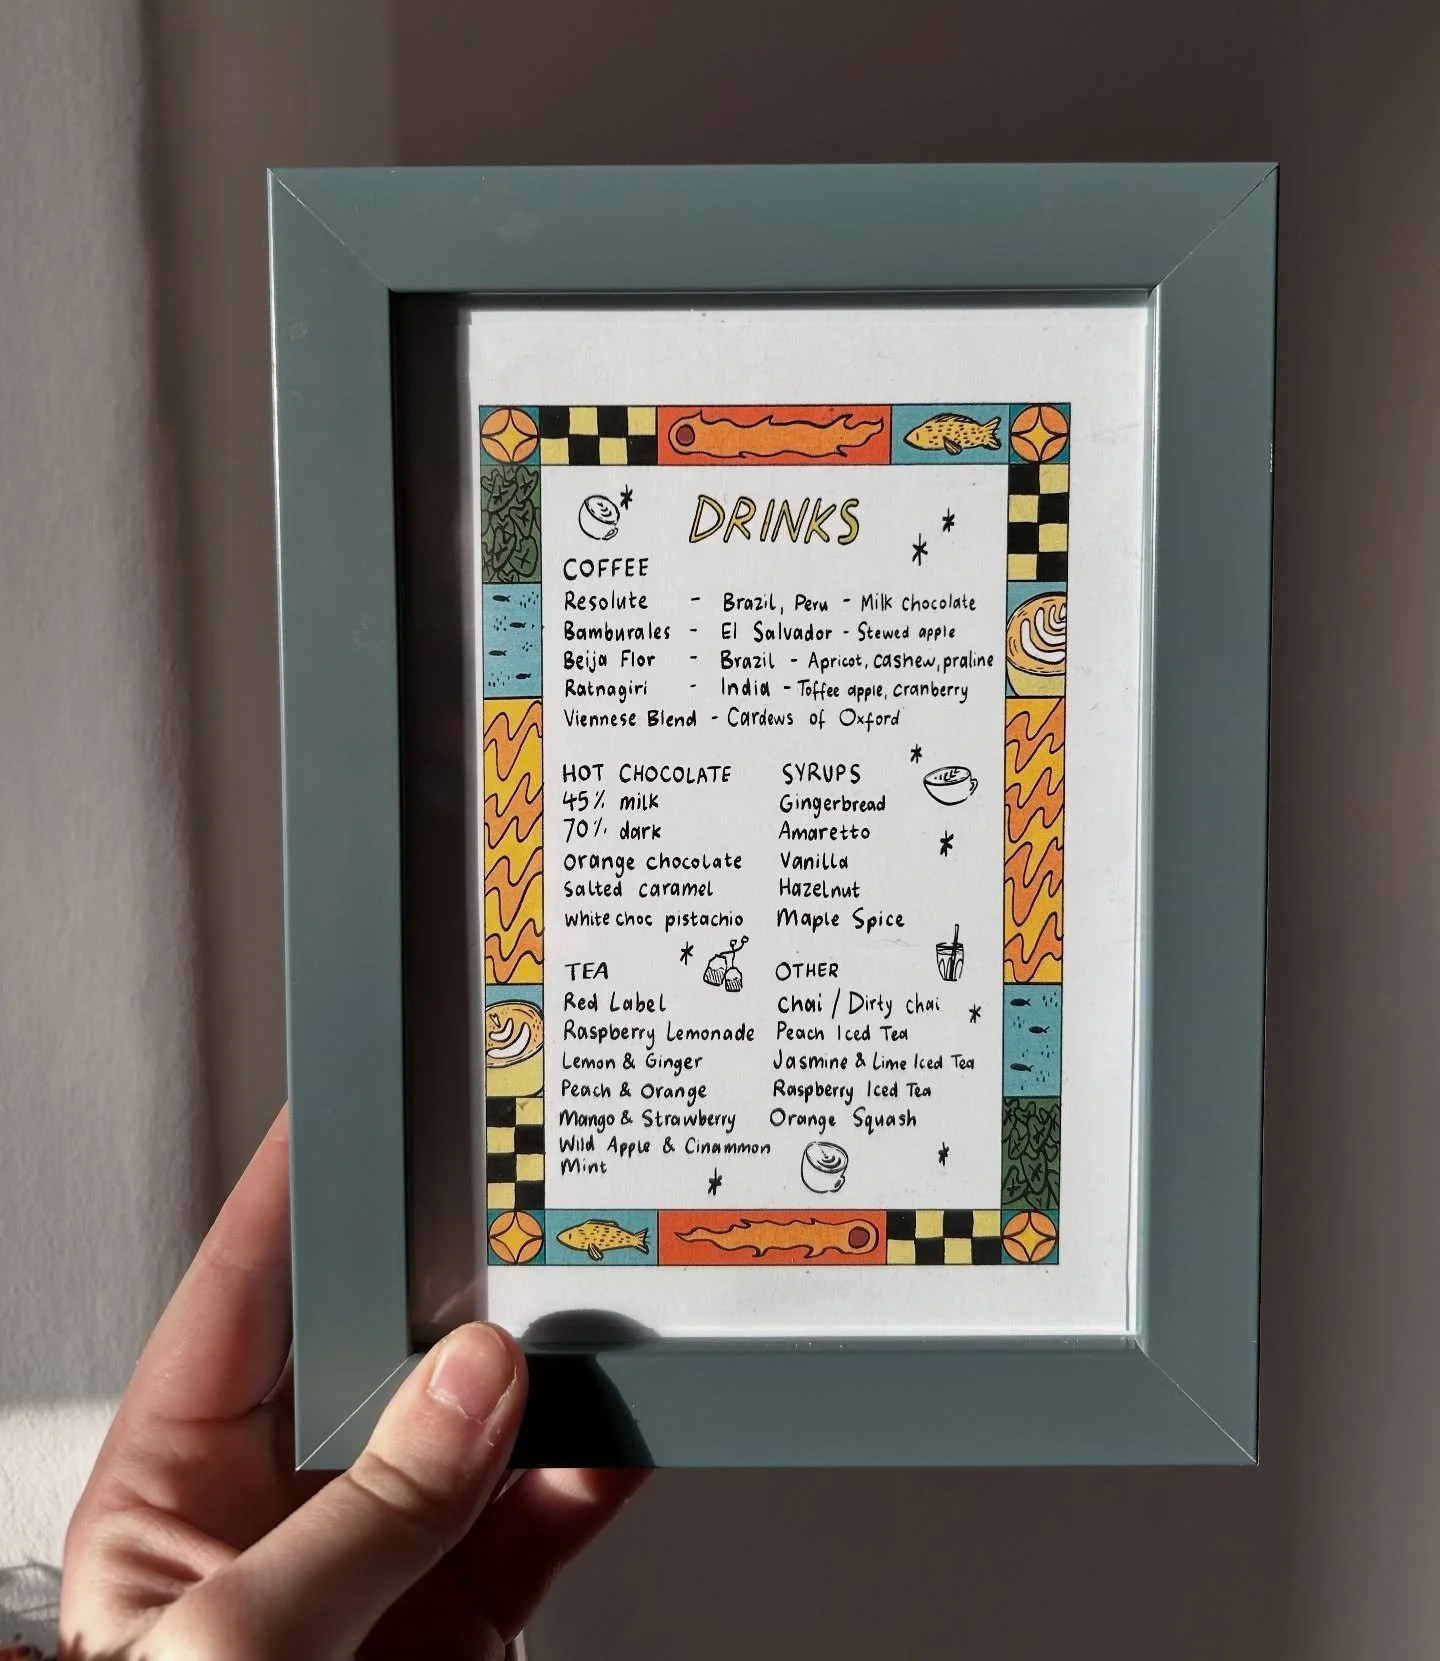 DRINKS
COFFEE
Resolute - Brazil, Peru - Milk chocolate
Bamburales - El Salvador - Stewed apple
Beija Flor - Brazil - Apricot, cashew, praline
Ratnagiri - India - Toffee apple, cranberry
Viennese Blend - Cardews of Oxford
HOT CHOCOLATE
45% milk
70% dark
orange chocolate
salted caramel
white choc pistachio
SYRUPS
Gingerbread
Amaretto
Vanilla
Hazelnut
Maple Spice
TEA
Red Label
Raspberry Lemonade
Lemon & Ginger
Peach & Orange
Mango & Strawberry
Wild Apple & Cinammon
Mint
OTHER
Chai / Dirty chai
Peach Iced Tea
Jasmine & Lime Iced Tea
Raspberry Iced Tea
Orange Squash